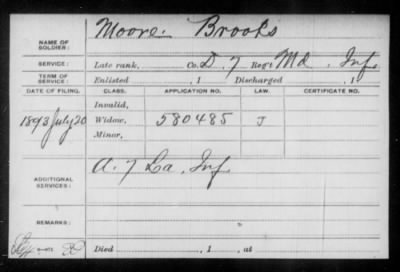 NAME OF SOLDIER: Moore Brooks
SERVICE: Late rank, Co. D. 7 Reg't Md. Inf.
TERM OF SERVICE: Enlisted , 1 Discharged , 1
DATE OF FILING. CLASS. APPLICATION NO. LAW. CERTIFICATE NO.
Invalid,
1893 July 20 Widow, 580485 J
Minor,
ADDITIONAL SERVICES: A. 7 La. Inf
REMARKS:
Died , 1 , at